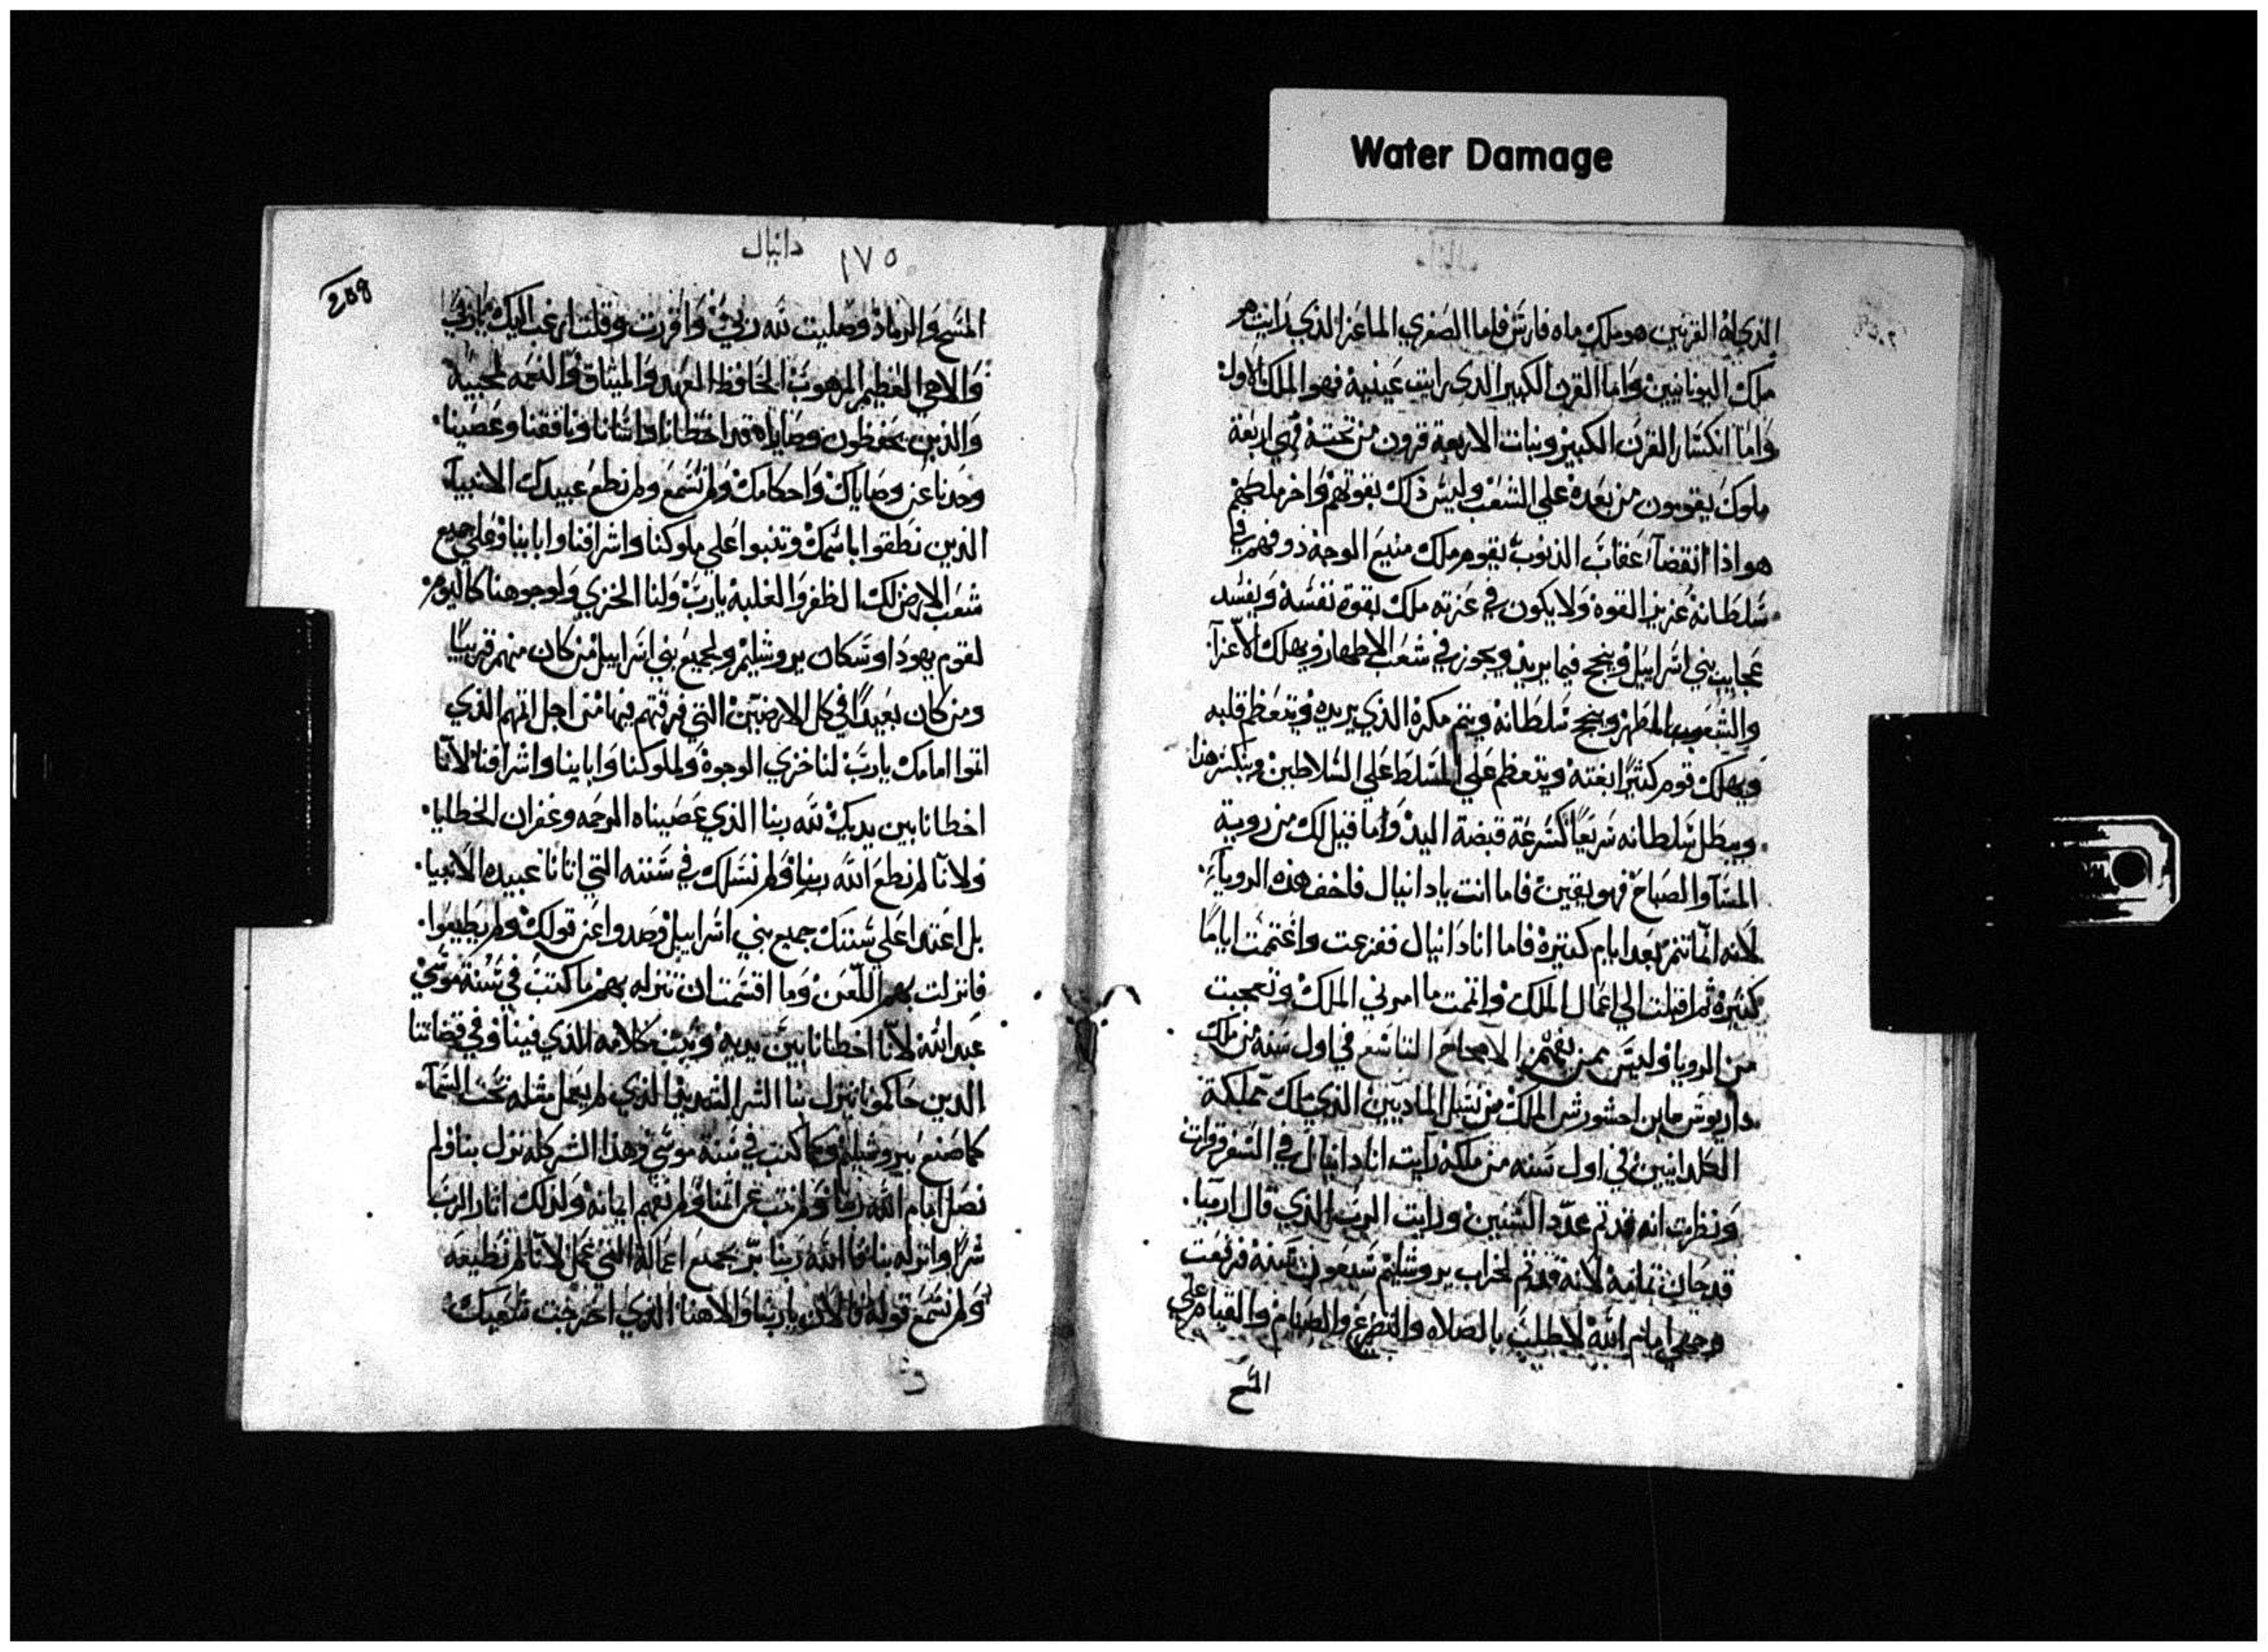 Water Damage
الذي له القرنين هو ملك ماه فارس فاما الصفري الماعز الذي رايت هو
ملك اليونانيين واما القرن الكبير الذي رايت عينيه فهو الملك الاول
واما انكسار القرن الكبير ونبات الاربعة قرون من تحته فهي اربعة
ملوك يقومون من بعده علي الشعب وليس ذلك بقوتهم واخر ملكهم
هو اذا انقضا اعقاب الذنوب يقوم ملك منيع الوجه ذو فهم في
سلطانه عزيز القوه ولا يكون في عزته ملك بقوة نفسه ويفسد
عجايب بني اسراييل وينجح فيما يريد ويجوز في شعب الاطهار ويهلك الاعزا
والشعوب المطهر وينجح سلطانه ويتم مكره الذي يريده ويتعظم قلبه
ويهلك قوم كثيرا بغتة ويتعظم علي المسلط علي السلاطين وينكسر هذا
ويبطل سلطانه سريعا كسرعة قبضة اليد واما قيل لك من روية
المسا والصباح فهو يقين فاما انت يا دانيال فاخف هذه الرويا
لانه انما تتم بعد ايام كثيره فاما انا دانيال ففزعت واغتممت اياما
كثيره ثم اقبلت الي اعمال الملك واتممت ما امرني الملك وتعجبت
من الرويا وليس بمن يفهم الاصحاح التاسع في اول سنه من ملك
داريوش ابن احشورش الملك من نسل الماديين الذي ملك مملكة
الكلدانيين في اول سنه من ملكه رايت انا دانيال في السفر قرات
ونظرت انه قد تم عدد السنين ورايت الرب الذي قال ارميا
قد حان تمامه لانه قد تم لخراب يروشليم سبعون سنه فرفعت
وجهي امام الله لاطلب بالصلاه والتضرع والصيام والقيام علي
المسح
دانيال ١٧٥
المسح والرماد وصليت لله ربي واقررت وقلت ارغب اليك يا ربي
والاهي العظيم المرهوب الحافظ العهد والميثاق والنعمه لمحبيه
والذين يحفظون وصاياه قد اخطانا واسانا ونافقنا وعصينا
وحدنا عن وصاياك واحكامك ولم نسمع ولم نطع عبيدك الانبيا
الذين نطقوا باسمك وتنبوا علي ملوكنا واشرافنا واباينا وعلي جميع
شعب الارض لك الظفر والغلبه يا رب ولنا الخزي ولوجوهنا كاليوم
لقوم يهودا وسكان يروشليم ولجميع بني اسراييل من كان منهم قريبا
ومن كان بعيدا في كل الارضين التي فرقتهم فيها من اجل اثمهم الذي
اثموا امامك يا رب لنا خزي الوجوه ولملوكنا واباينا واشرافنا لانا
اخطانا بين يديك لله ربنا الذي عصيناه الرحمه وغفران الخطايا
ولانا لم نطع الله ربنا ولم نسلك في سننه التي اتانا عبيده الانبيا
بل اعتدا علي سننك جميع بني اسراييل وصدوا عن قولك ولم يطيعوا
فانزلت بهم اللعن وما اقسمت ان تنزله بهم ما كتب في سنة موسي
عبد الله لانا اخطانا بين يديه وثبت كلامه الذي فينا وفي قضاتنا
الذين حاكمونا ينزل بنا الشر الشديد الذي لم يعمل مثله تحت السما
كما صنع بيروشليم وكما كتب في سنة موسي وهذا الشر كله نزل بنا ولم
نصل امام الله ربنا ولم نتب عن اثمنا ولم نفهم ايمانه ولذلك اثار الرب
شرا وانزله بنا فالله ربنا بر بجميع اعماله التي عمل لانا لم نطيعه
ولم نسمع قوله فالان يا ربنا والاهنا الذي اخرجت شعبك